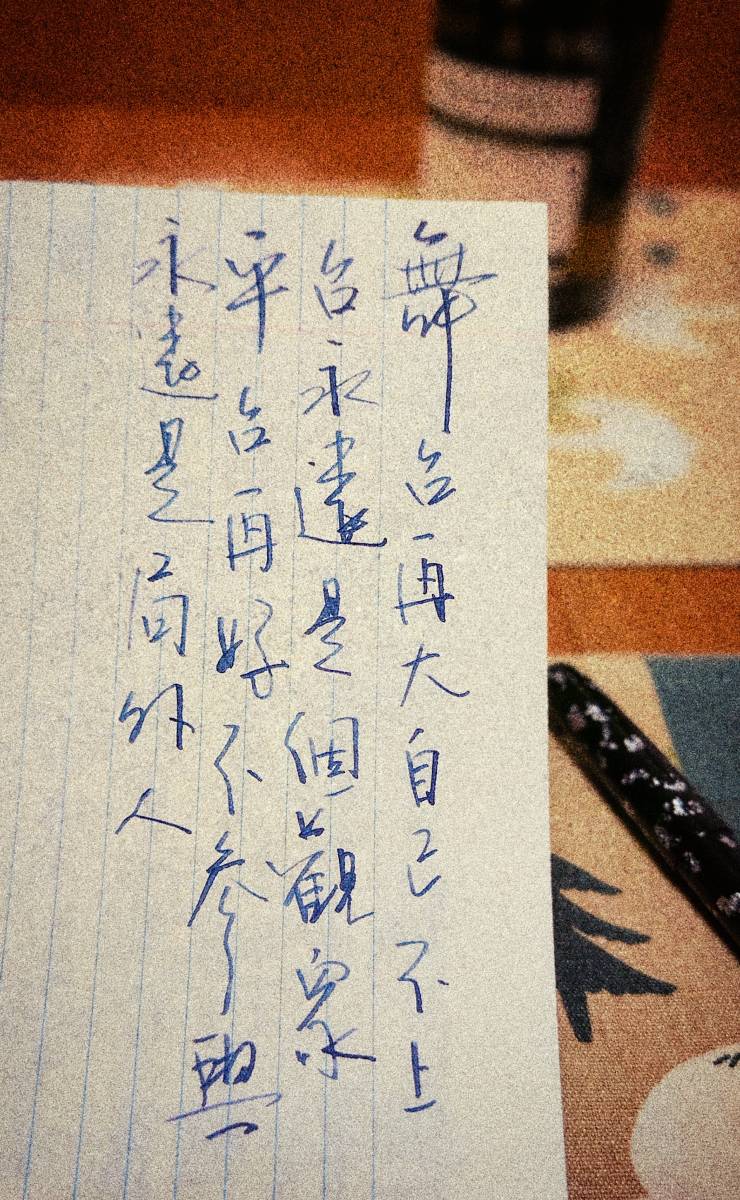 舞台再大自己不上
台永遠是個觀眾
平台再好不參與
永遠是局外人